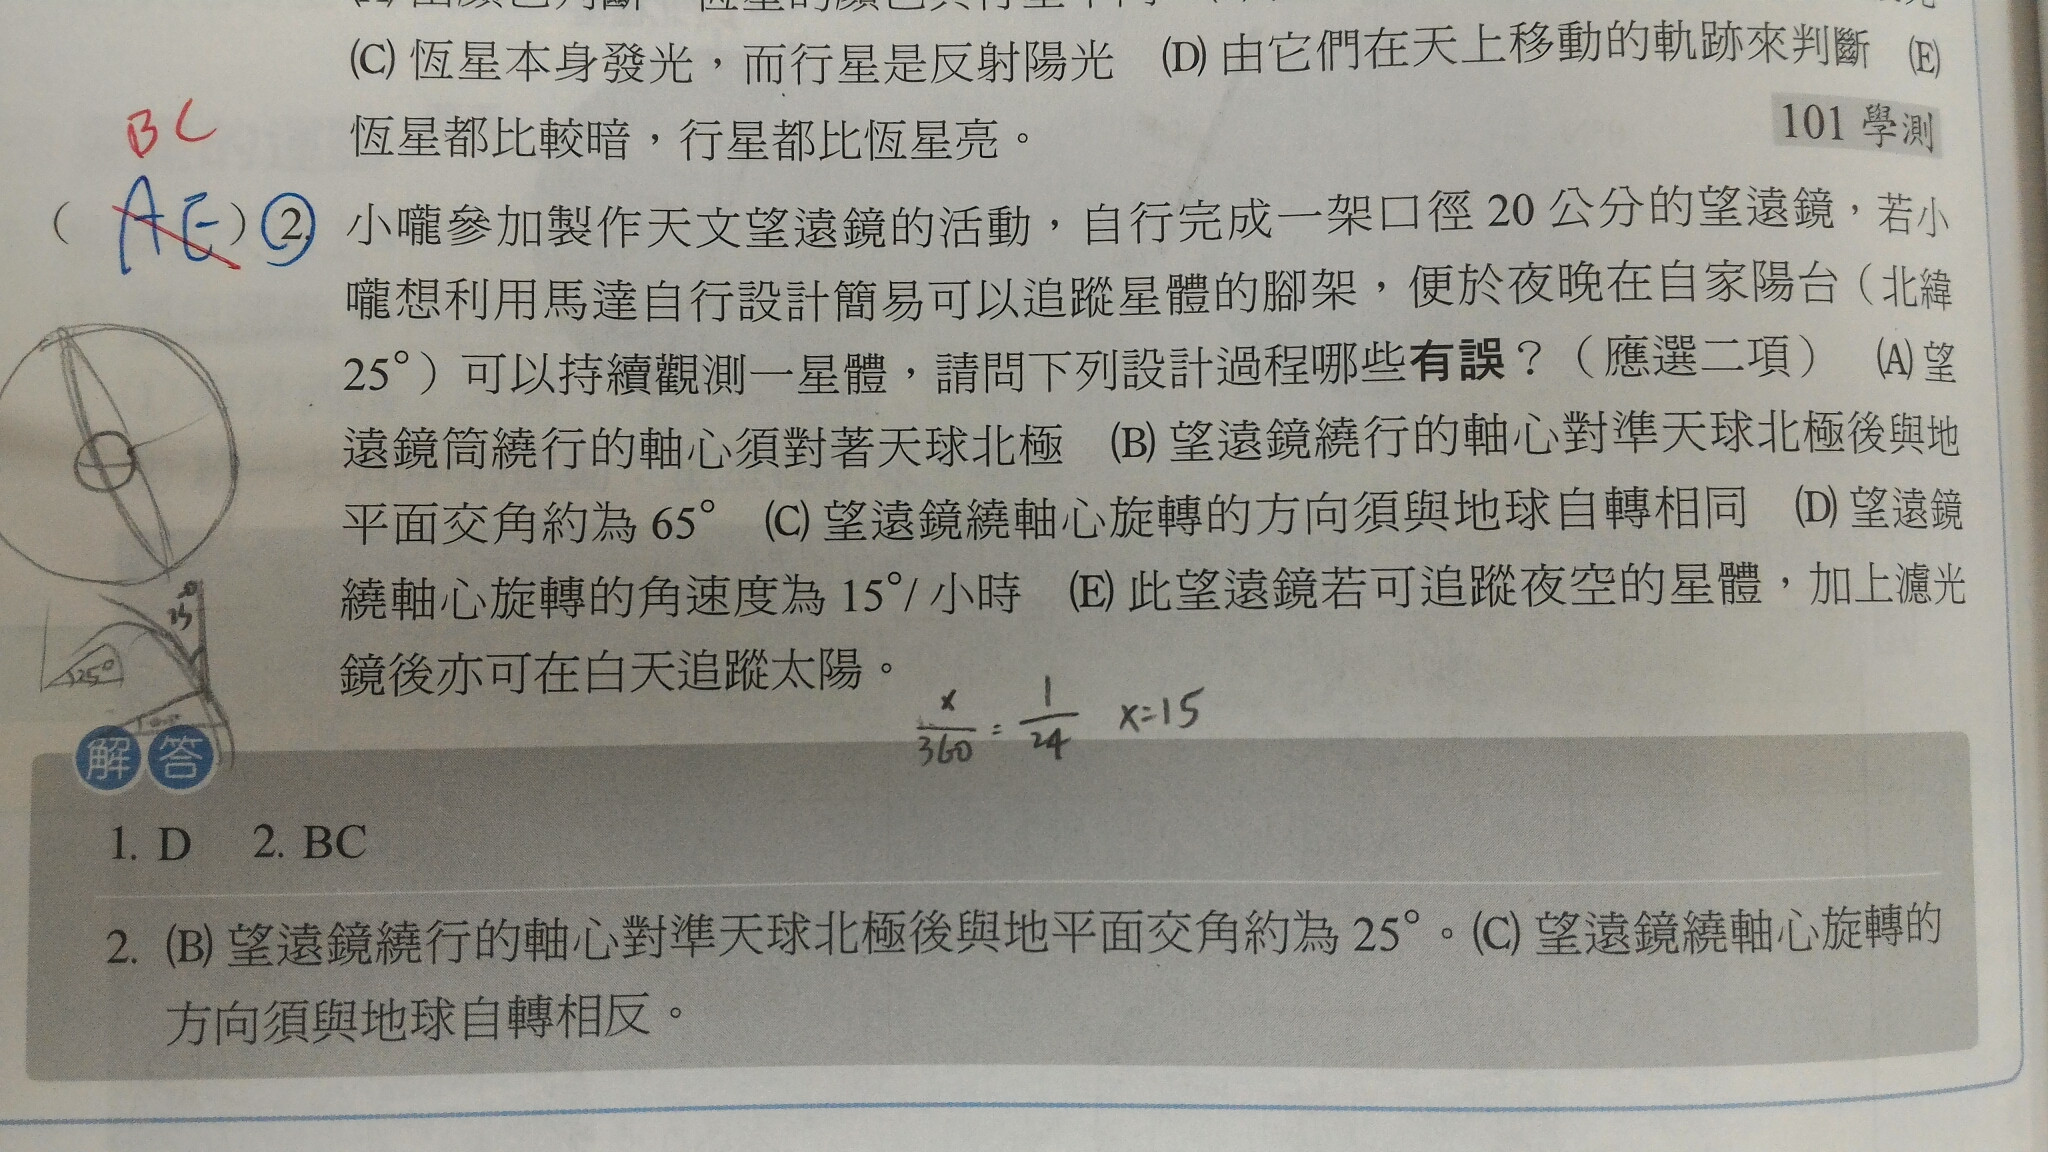 (C) 恆星本身發光，而行星是反射陽光 (D) 由它們在天上移動的軌跡來判斷 (E)
恆星都比較暗，行星都比恆星亮。
101 學測
BC
( AE ) 2. 小嚨參加製作天文望遠鏡的活動，自行完成一架口徑 20 公分的望遠鏡，若小
嚨想利用馬達自行設計簡易可以追蹤星體的腳架，便於夜晚在自家陽台（北緯
25°）可以持續觀測一星體，請問下列設計過程哪些有誤？（應選二項） (A) 望
遠鏡筒繞行的軸心須對著天球北極 (B) 望遠鏡繞行的軸心對準天球北極後與地
平面交角約為 65° (C) 望遠鏡繞軸心旋轉的方向須與地球自轉相同 (D) 望遠鏡
繞軸心旋轉的角速度為 15°/ 小時 (E) 此望遠鏡若可追蹤夜空的星體，加上濾光
鏡後亦可在白天追蹤太陽。
25°
x/360 = 1/24 x=15
解答
1. D 2. BC
2. (B) 望遠鏡繞行的軸心對準天球北極後與地平面交角約為 25°。(C) 望遠鏡繞軸心旋轉的
方向須與地球自轉相反。